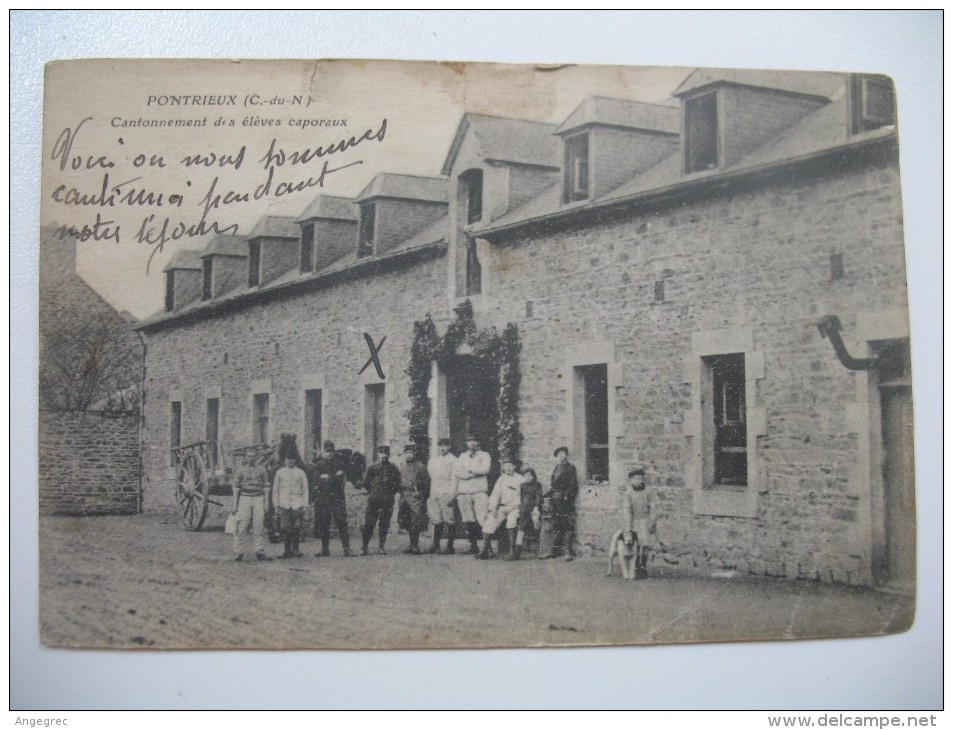 PONTRIEUX (C.-du-N.)
Cantonnement des élèves caporaux
Voici ou nous sommes
cantonné pendant
notre séjour
X
Angegrec
www.delcampe.net